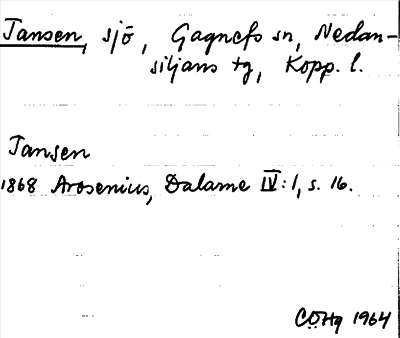 Tansen, sjö, Gagnefs sn, Nedan-
siljans tg, Kopp. l.
Tansen
1868 Arosenius, Dalarne IV:1, s. 16.
CÖHg 1964